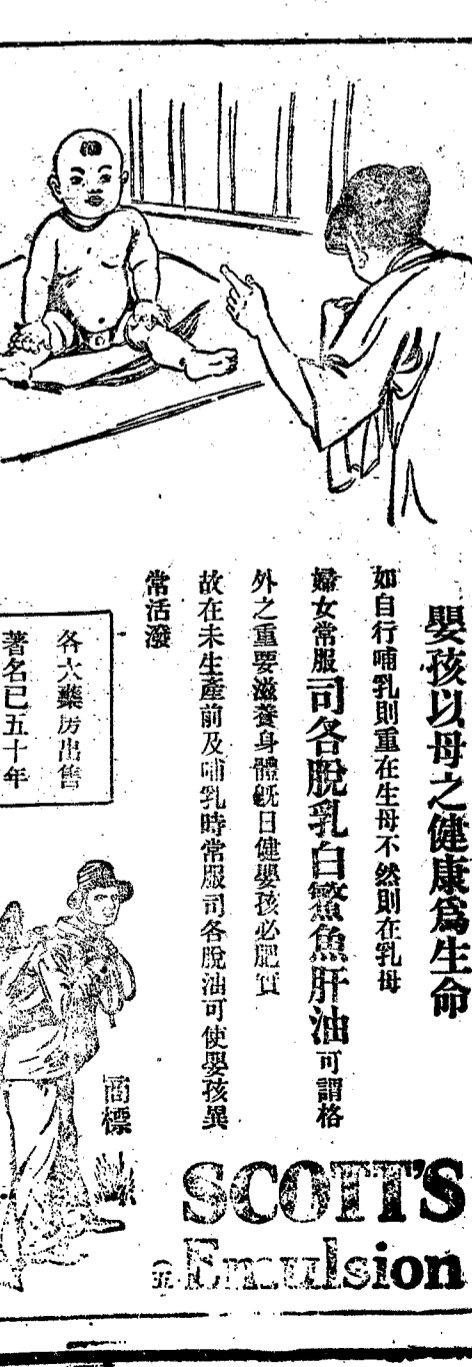 嬰孩以母之健康爲生命
如自行哺乳則重在生母不然則在乳母
婦女常服司各脫乳白鰵魚肝油可謂格
外之重要滋養身體旣日健嬰孩必肥實
故在未生產前及哺乳時常服司各脫油可使嬰孩異
常活潑
各大藥房出售
著名已五十年
商標
SCOTT'S
Emulsion